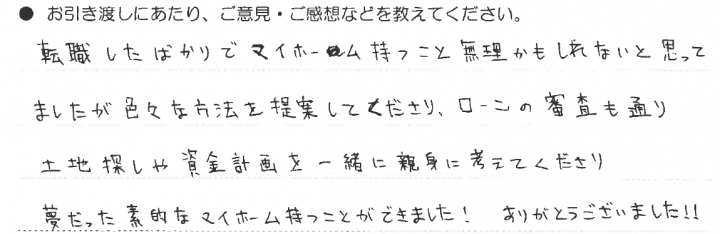 ● お引き渡しにあたり、ご意見・ご感想などを教えてください。
転職したばかりでマイホーム持つこと無理かもしれないと思って
ましたが色々な方法を提案してくださり、ローンの審査も通り
土地探しや資金計画を一緒に親身に考えてくださり
夢だった素的なマイホーム持つことができました! ありがとうございました!!